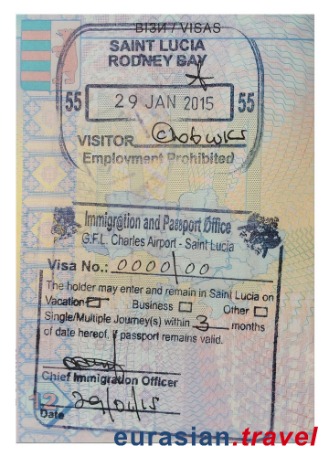 ВІЗИ / VISAS
SAINT LUCIA
RODNEY BAY
55 29 JAN 2015 55
VISITOR
Employment Prohibited
Immigration and Passport Office
G.F.L. Charles Airport - Saint Lucia
Visa No.: 0000/00
The holder may enter and remain in Saint Lucia on
Vacation Business Other
Single/Multiple Journey(s) within 3 months
of date hereof, if passport remains valid.
Chief Immigration Officer
12
Date
eurasian.travel